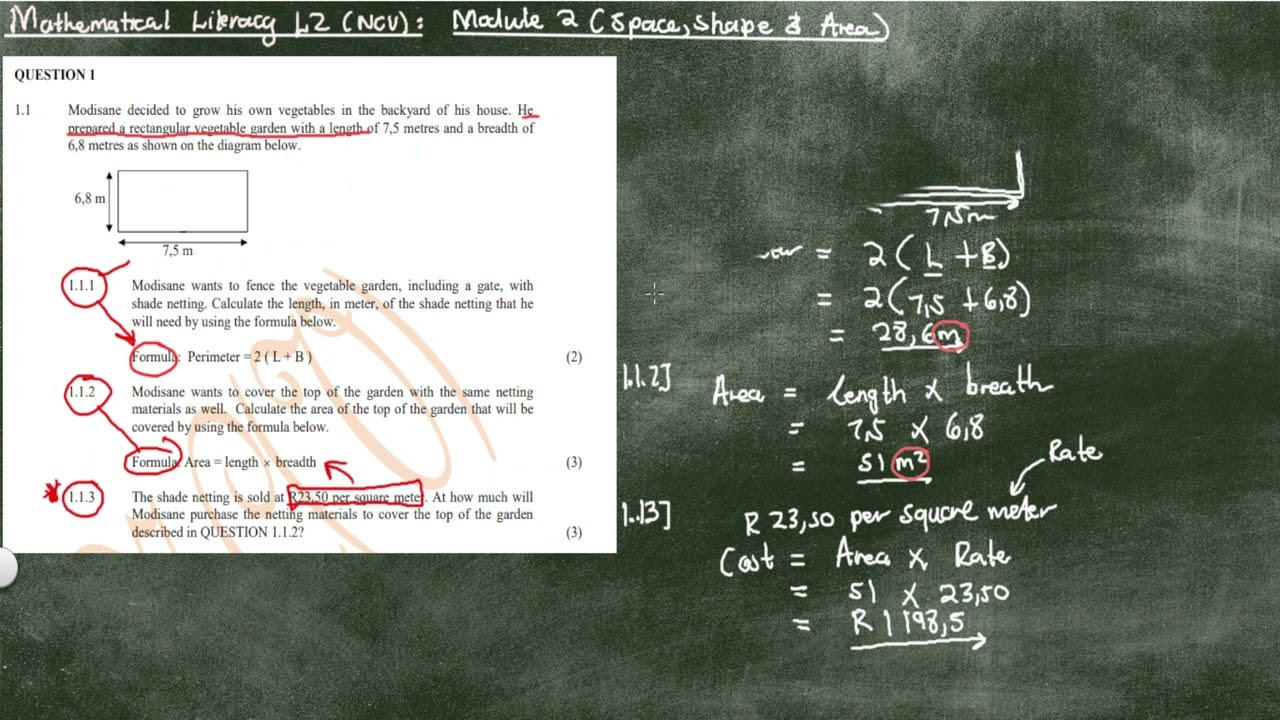 Mathematical Literacy L2 (NCV): Module 2 (Space, Shape & Area)
QUESTION 1
1.1 Modisane decided to grow his own vegetables in the backyard of his house. He
prepared a rectangular vegetable garden with a length of 7,5 metres and a breadth of
6,8 metres as shown on the diagram below.
6,8 m
7,5 m
1.1.1 Modisane wants to fence the vegetable garden, including a gate, with
shade netting. Calculate the length, in meter, of the shade netting that he
will need by using the formula below.
Formula: Perimeter = 2 ( L + B ) (2)
1.1.2 Modisane wants to cover the top of the garden with the same netting
materials as well. Calculate the area of the top of the garden that will be
covered by using the formula below.
Formula: Area = length × breadth (3)
1.1.3 The shade netting is sold at R23,50 per square meter. At how much will
Modisane purchase the netting materials to cover the top of the garden
described in QUESTION 1.1.2? (3)
7,5m
= 2 ( L + B )
= 2 ( 7,5 + 6,8 )
= 28,6 m
1.1.2] Area = length × breath
= 7,5 × 6,8
= 51 m²
Rate
1.1.3] R 23,50 per square meter
Cost = Area × Rate
= 51 × 23,50
= R 1 198,5